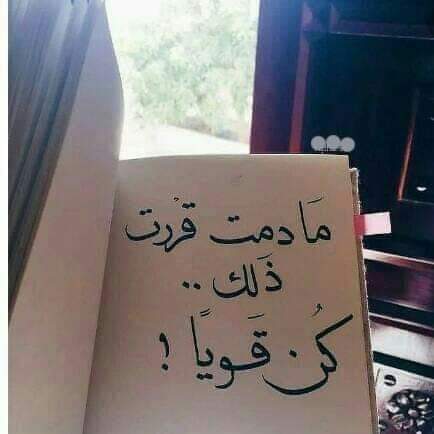 مَادمت قرْرت
ذَلك ..
كُن قَوياً !